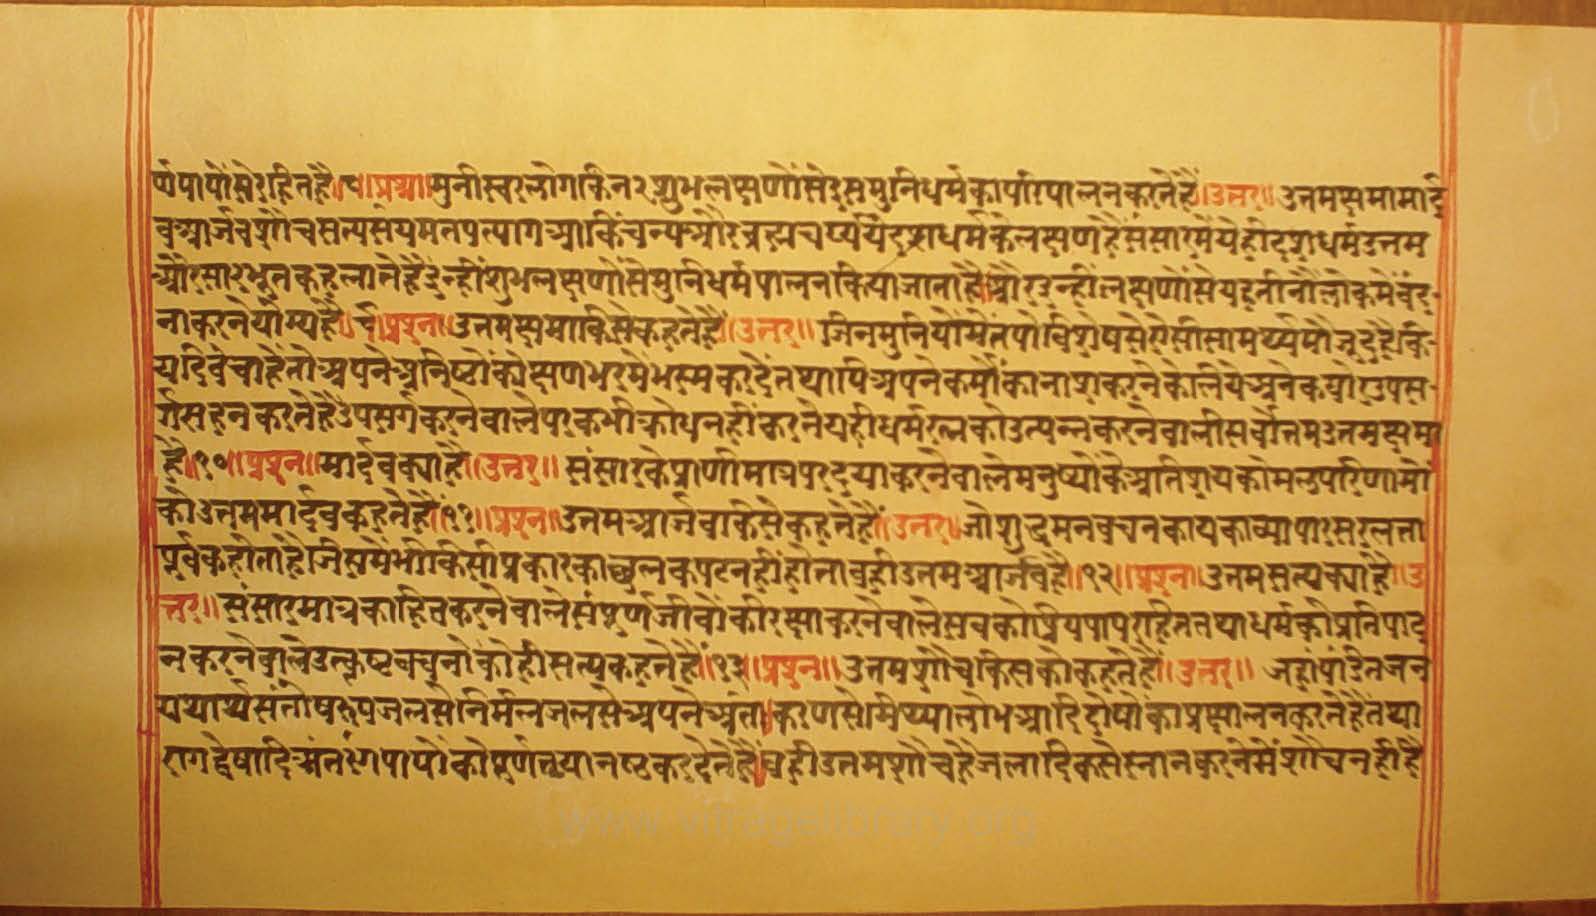 र्णपापोंसेरहितहै॥८॥प्रश्न॥मुनीस्वरलोगकिन२शुभलक्षणोंसेइसमुनिधर्मकापरिपालनकरतेहैं॥उत्तर॥उत्तमक्षमामार्द
वआर्जवशौचसत्यसंयमतपत्यागआकिंचन्यऔरब्रह्मचर्य्ययेदशधर्मकेलक्षणहैंसंसारमेंयेहीदशधर्मउत्तम
औरसारभूतकहलातेहैंइन्हींशुभलक्षणोंसेमुनिधर्मपालनकियाजाताहै॥औरइन्हींलक्षणोंसेयहतीनोंलोकमेंवंद-
नाकरनेयोग्यहै॥९॥प्रश्न॥उत्तमक्षमाकिसेकहतेहैं॥उत्तर॥जिनमुनियोंमेंतपोविशेषसेऐसीसामर्थ्यमौजूदहैकि-
यदिवेचाहेंतोअपनेअनिष्टोंकोक्षणभरमेंभस्मकरदेंतथापिअपनेकर्मोंकानाशकरनेकेलियेअनेकघोरउपस-
र्गसहनकरतेहैंउपसर्गकरनेवालेपरकभीक्रोधनहींकरतेयहीधर्मरत्नकोउत्पन्नकरनेवालीसर्वोत्तमउत्तमक्षमा
है॥१०॥प्रश्न॥मार्दवक्याहै॥उत्तर॥संसारकेप्राणीमात्रपरदयाकरनेवालेमनुष्योंकेअतिशयकोमलपरिणामों
कोउत्तममार्दवकहतेहैं॥११॥प्रश्न॥उत्तमआर्जवकिसेकहतेहैं॥उत्तर॥जोशुद्धमनवचनकायकाव्यापारसरलता
पूर्वकहोताहैजिसमेंभीकिसीप्रकारकाछलकपटनहींहोतावहीउत्तमआर्जवहै॥१२॥प्रश्न॥उत्तमसत्यक्याहै॥उ
त्तर॥संसारमात्रकाहितकरनेवालेसंपूर्णजीवोंकीरक्षाकरनेवालेसबकोप्रियपापरहिततथाधर्मकोप्रतिपाद
नकरनेवालेउत्कृष्टवचनोंकोहीसत्यकहतेहैं॥१३॥प्रश्न॥उत्तमशौचकिसकोकहतेहैं॥उत्तर॥जहांपंडितजन
यथार्थसंतोषरूपजलसेनिर्मलजलसेअपनेअंतःकरणसेमिथ्यालोभआदिदोषोंकाप्रक्षालनकरतेहैंतथा
रागद्वेषादिअंतरंगपापोंकोपूर्णतयानष्टकरदेतेहैं॥वहीउत्तमशौचहैजलादिकसेस्नानकरनेमेंशौचनहींहै
www.vitragelibrary.org